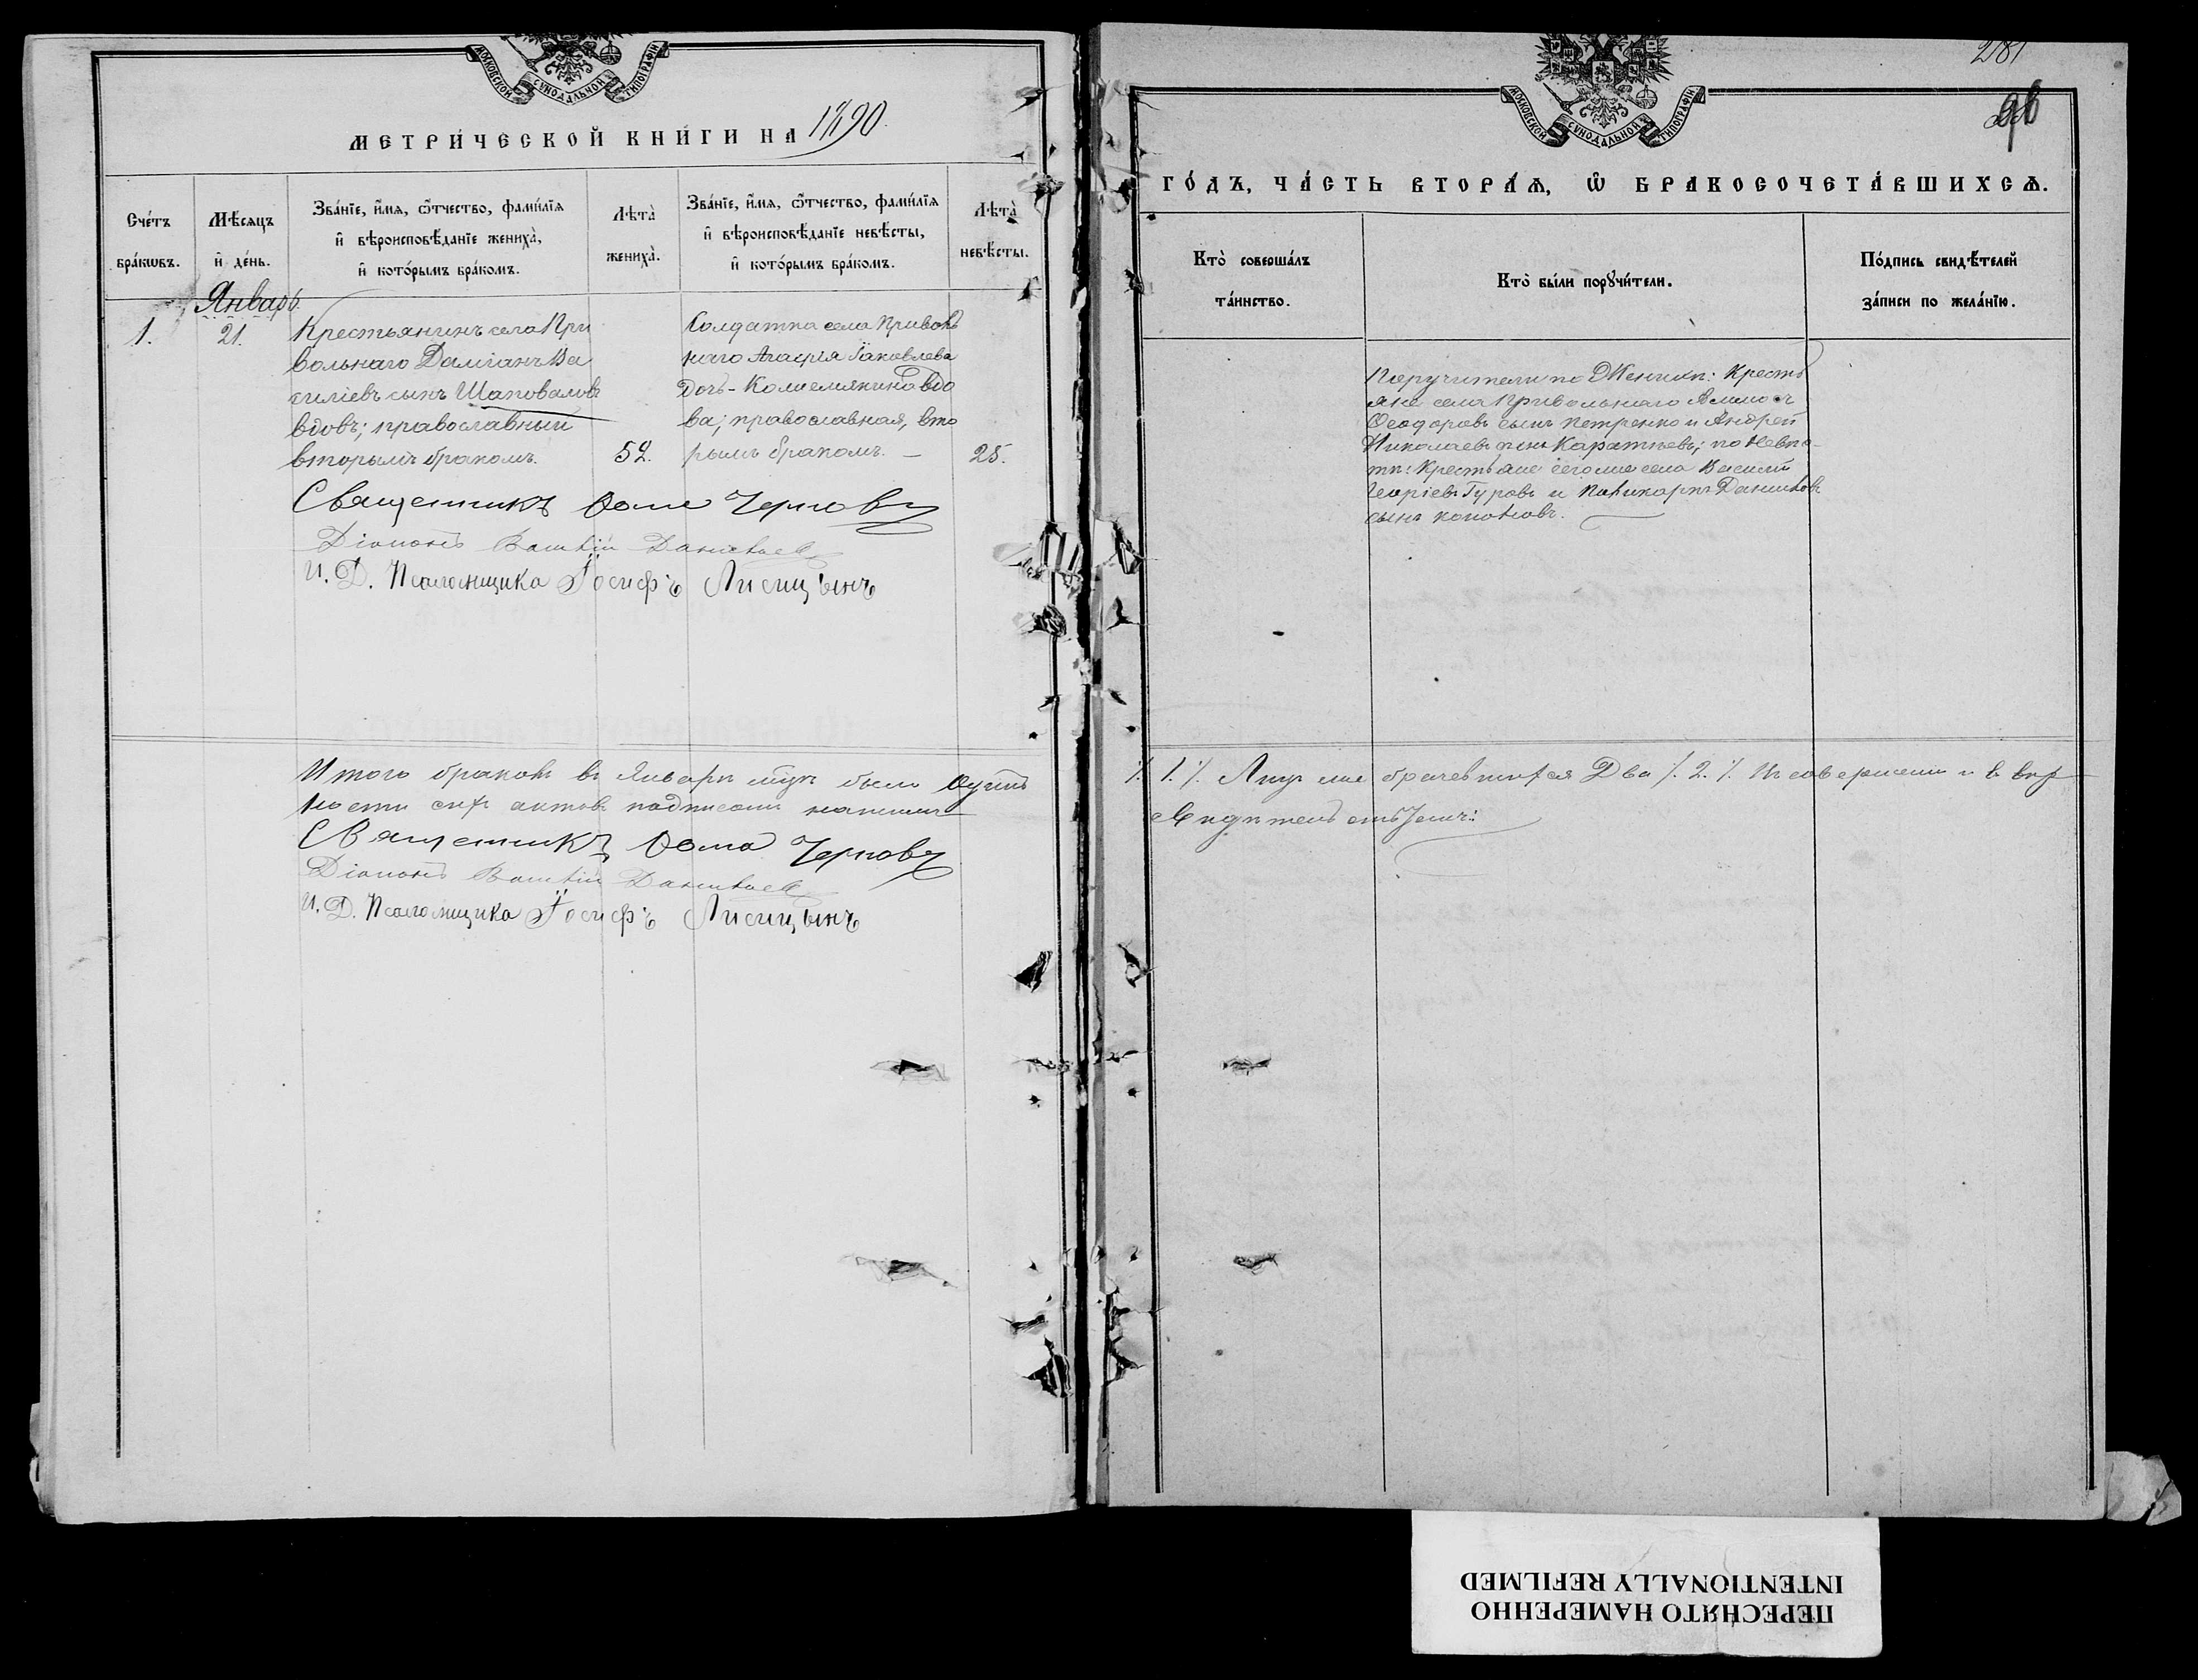 МОСКОВСКОЙ СУНОДАЛЬНОЙ ТИПОГРАФІИ
МЕТРИ́ЧЕСКОЙ КНИ́ГИ НА 1890.
Сче́тъ бра́кѡвъ.
Мѣ́сяцъ и҆ де́нь.
Зва́нїе, и҆́мѧ, ѻ҆́тчество, фами́лїѧ
и҆ вѣроисповѣ́данїе жениха̀,
и҆ кото́рымъ бра́комъ.
Лѣта̀ жениха̀.
Зва́нїе, и҆́мѧ, ѻ҆́тчество, фами́лїѧ
и҆ вѣроисповѣ́данїе невѣ́сты,
и҆ кото́рымъ бра́комъ.
Лѣта̀ невѣ́сты.
Январь
1.
21.
Крестьянинъ села При
вольнаго Даміанъ Ва
силіевъ сынъ Шаповаловъ
вдовъ; православный
вторымъ бракомъ.
52.
Солдатка села Приволь
наго Агафія Іаковлева
дочь - вдо
ва; православная, вто
рымъ бракомъ. —
25.
Священникъ Ѳома Черновъ
Діаконъ
И. Д. Псаломщика Іосифъ Лисицынъ
Итого браковъ въ Январѣ м҃цѣ было Одинъ
ности сихъ актовъ подписомъ нашимъ
Священникъ Ѳома Черновъ
Діаконъ
И. Д. Псаломщика Іосифъ Лисицынъ
281
МОСКОВСКОЙ СУНОДАЛЬНОЙ ТИПОГРАФІИ
ГО́ДЪ, ЧА́СТЬ ВТОРА́Ѧ, Ѽ БРАКОСОЧЕТА́ВШИХСѦ.
Кто̀ соверша́лъ
та́инство.
Кто̀ бы́ли порꙋчи́тели.
По́дпись свидѣ́телей
за́писи по жела́нїю.
Поручители по Женихѣ: Кресть
яне села Привольнаго
Ѳеодоровъ сынъ Петренко и Андрей
Николаевъ сынъ по Невѣс-
тѣ: Крестьяне сего же села Василій
Георгіевъ Гуровъ и Поликарпъ Даниловъ
сынъ
/. 1. /. Лицъ же брачевшихся Два /. 2. /. въ совершеніи и въ вѣр
Свидѣтельствуемъ:
ПЕРЕСНЯТО НАМЕРЕННО
INTENTIONALLY REFILMED